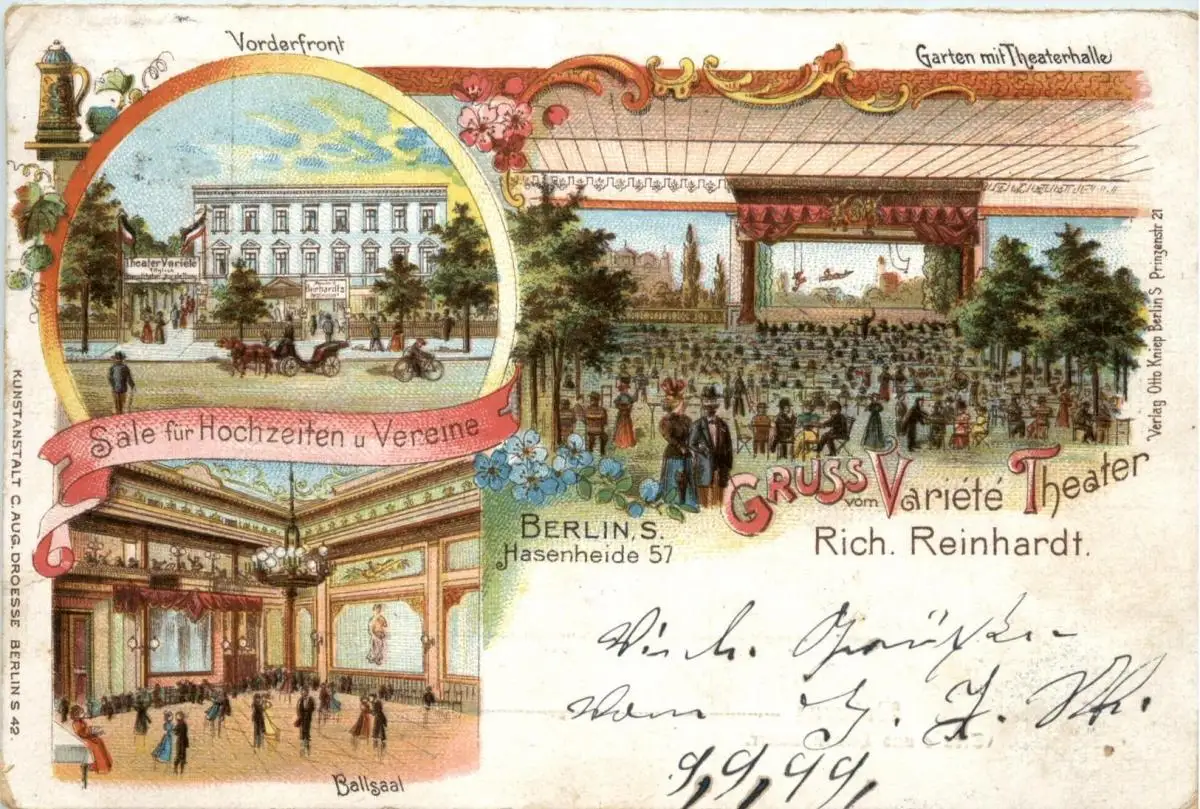 Vorderfront
Garten mit Theaterhalle
Theater Variété
Säle für Hochzeiten u Vereine
GRUSS vom Variété Theater
Rich. Reinhardt.
BERLIN, S.
Hasenheide 57
Ballsaal
KUNSTANSTALT C. AUG. DROESSE BERLIN S 42.
Verlag Otto Kniep Berlin S Prinzenstr 21
Grüße
von
9,9,99,